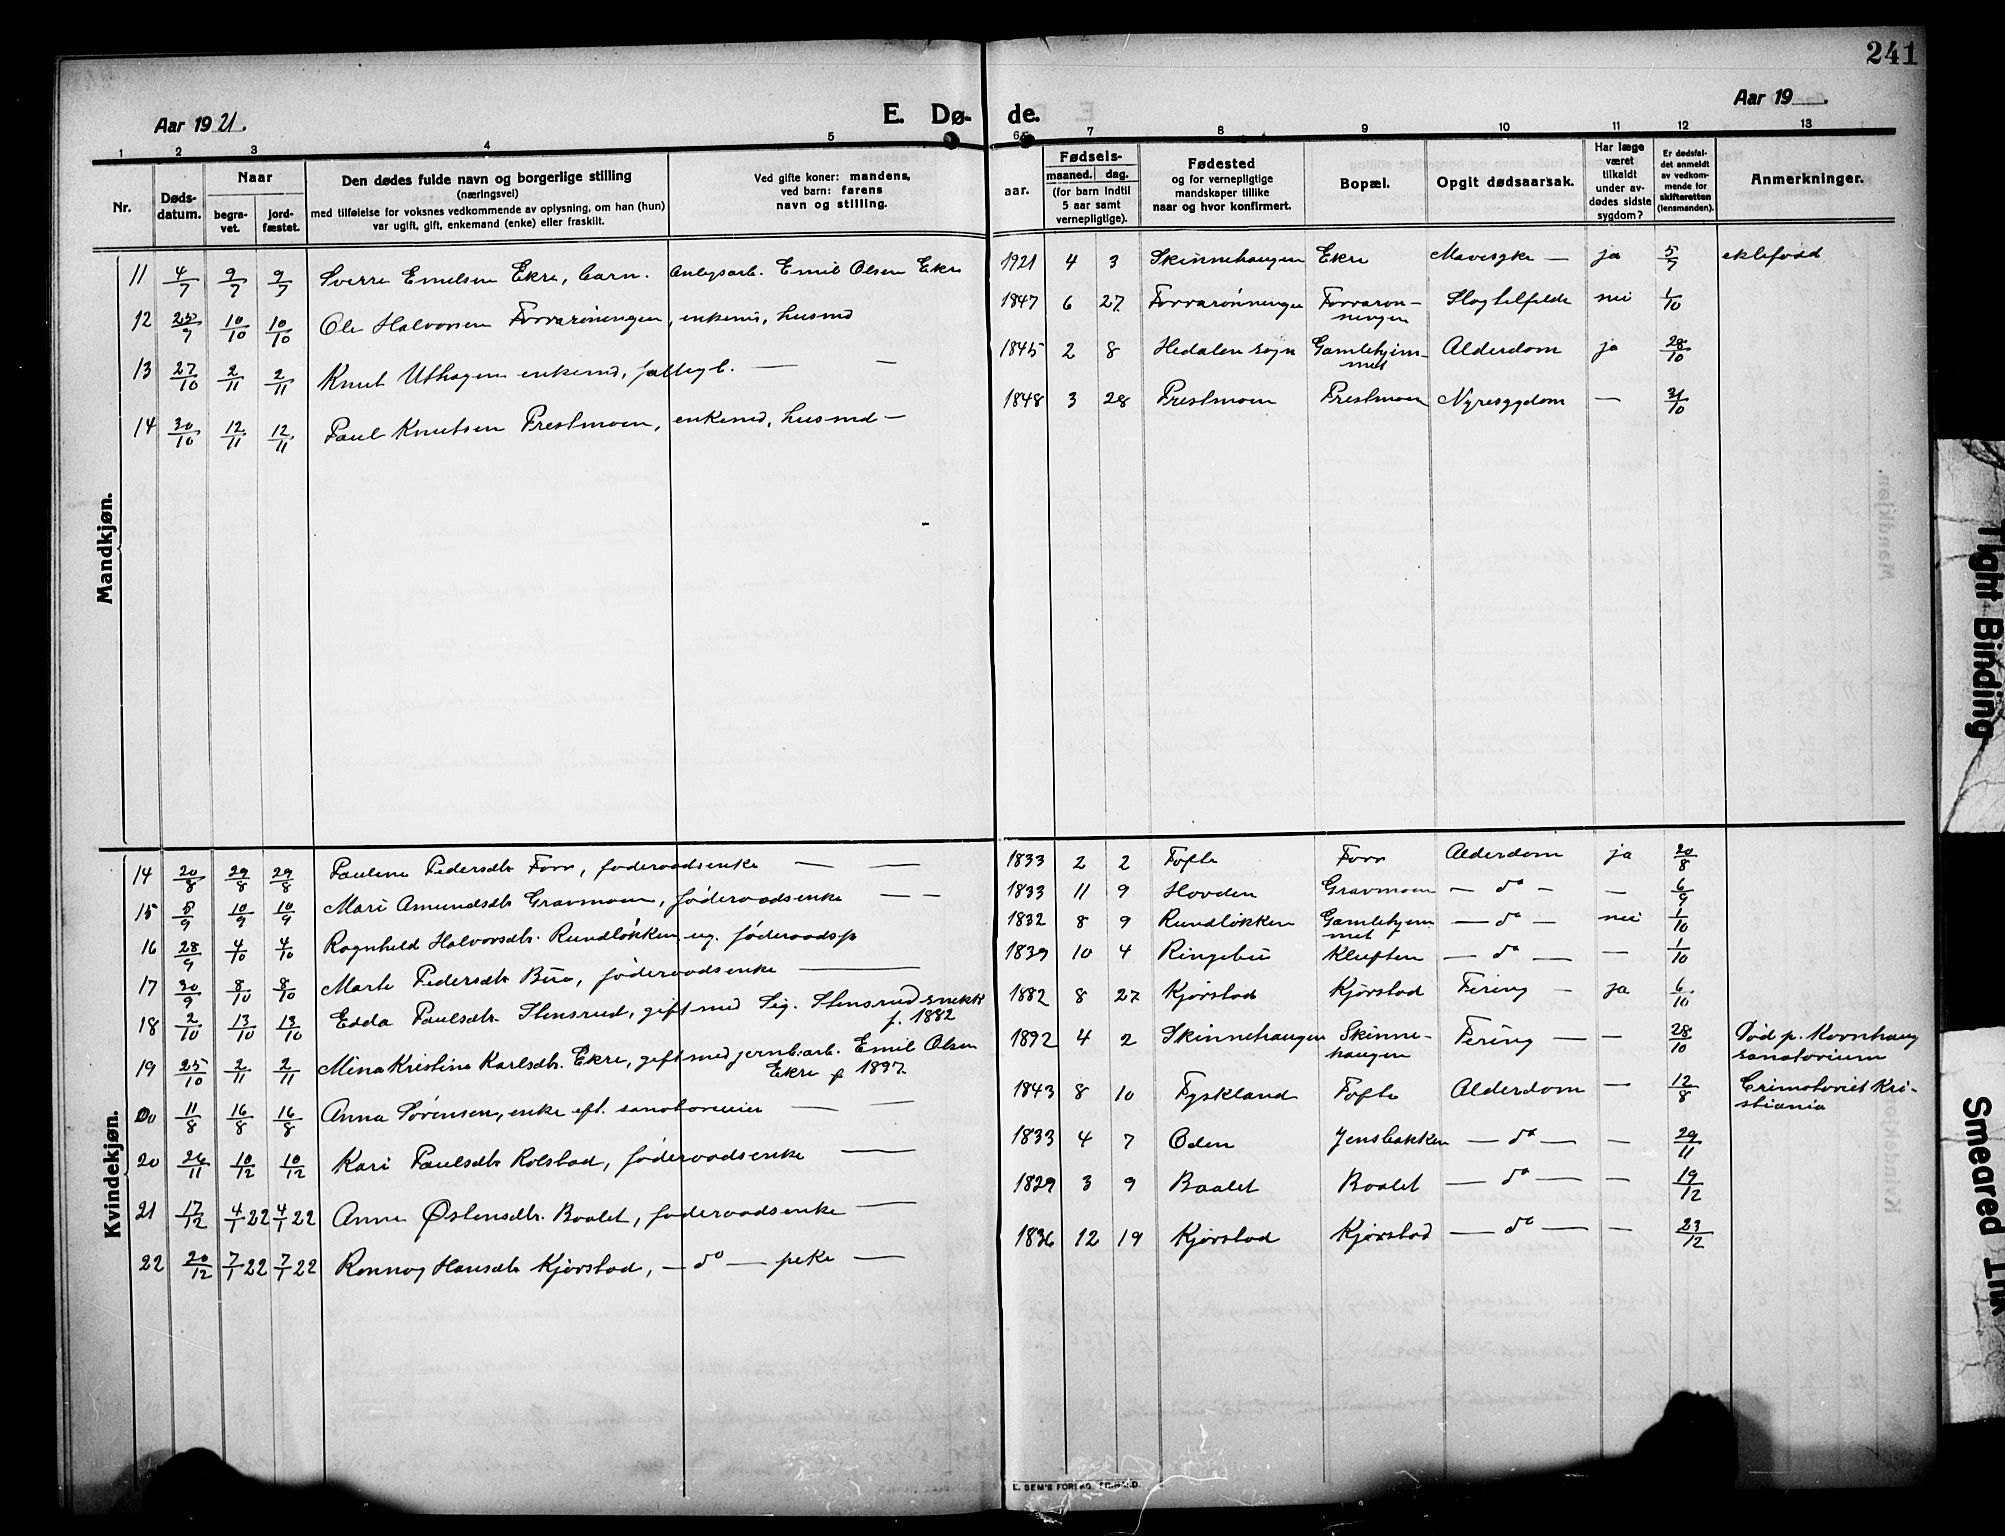 241
Aar 1921.
E. Dø- de.
Aar 19 .
1 2 3 4 5 6 7 8 9 10 11 12 13
Nr.
Døds-
datum.
Naar
begra-
vet.
jord-
fæstet.
Den dødes fulde navn og borgerlige stilling
(næringsvei)
med tilføielse for voksnes vedkommende av oplysning, om han (hun)
var ugift, gift, enkemand (enke) eller fraskilt.
Ved gifte koner: mandens,
ved barn: farens
navn og stilling.
aar.
Fødsels-
maaned. dag.
(for barn indtil
5 aar samt
vernepligtige).
Fødested
og for vernepligtige
mandskaper tillike
naar og hvor konfirmert.
Bopæl.
Opgit dødsaarsak.
Har læge
været
tilkaldt
under av-
dødes sidste
sygdom?
Er dødsfal-
det anmeldt
av vedkom-
mende for
skifteretten
(lensmanden).
Anmerkninger.
Mandkjøn.
11 4/7 9/7 9/7 Sverre Emilsen Ekre, barn. Anlegsarb. Emil Olsen Ekre 1921 4 3 Skinnehaugen Ekre Mavesyke — ja 5/7 ektefødd
12 25/9 10/10 10/10 Ole Halvorsen Forrarønningen, enkemd, husmd 1847 6 27 Forrarønningen Forraron-
ningen Slagtilfelde nei 1/10
13 27/10 2/11 2/11 Knut Uthagen enkemd, fattigl. — 1845 2 8 Hedalen sogn Gamlehjem-
met Alderdom ja 28/10
14 30/10 12/11 12/11 Paul Knutsen Prestmoen, enkemd, husmd — 1848 3 28 Prestmoen Prestmoen Nyresygdom — 31/10
Kvindekjøn.
14 20/8 29/8 29/8 Pauline Pedersdtr Forr, føderaadsenke — — 1833 2 2 Tofte Forr Alderdom ja 20/8
15 5/9 10/9 10/9 Mari Amundsdtr Gravmoen, føderaadsenke — — 1833 11 9 Hovden Gravmoen — do — — 6/9
16 28/9 4/10 4/10 Ragnhild Halvorsdtr. Rundløkken, ug. føderaadsp 1832 8 9 Rundløkken Gamlehjem-
met — do — nei 1/10
17 30/9 8/10 8/10 Marte Pedersdtr Bua, føderaadsenke — 1839 10 4 Ringebu Kleiften — do — — 1/10
18 2/10 13/10 13/10 Edda Paulsdtr. Stensrud, gift med Sig. Stensrud snekk
f. 1882 1882 8 27 Kjørstad Kjørstad Tering — ja 6/10
19 25/10 2/11 2/11 Mina Kristine Karlsdtr. Ekre, gift med jernb.arb. Emil Olsen
Ekre f 1897. 1892 4 2 Skinnehaugen Skinne-
haugen Tering — — 28/10 Død p. Kornhaug
sanatorium
11/8 16/8 16/8 Anna Sørensen, enke eft. — — 1843 8 10 Tyskland Tofte Alderdom — 12/8 Crimatoriet Kri-
stiania
20 26/11 10/12 10/12 Kari Paulsdtr Rolstad, føderaadsenke — 1833 4 7 Oden Jensbakken — do — — 29/11
21 17/12 4/1 22 4/1 22 Anne Østensdtr. Baalet, føderaadsenke — 1829 3 9 Baalet Baalet — do — — 19/12
22 20/12 7/1 22 7/1 22 Rønnog Hansdtr Kjørstad, — do — pike — 1836 12 19 Kjørstad Kjørstad — do — — 23/12
Tight Binding
Smeared Ink